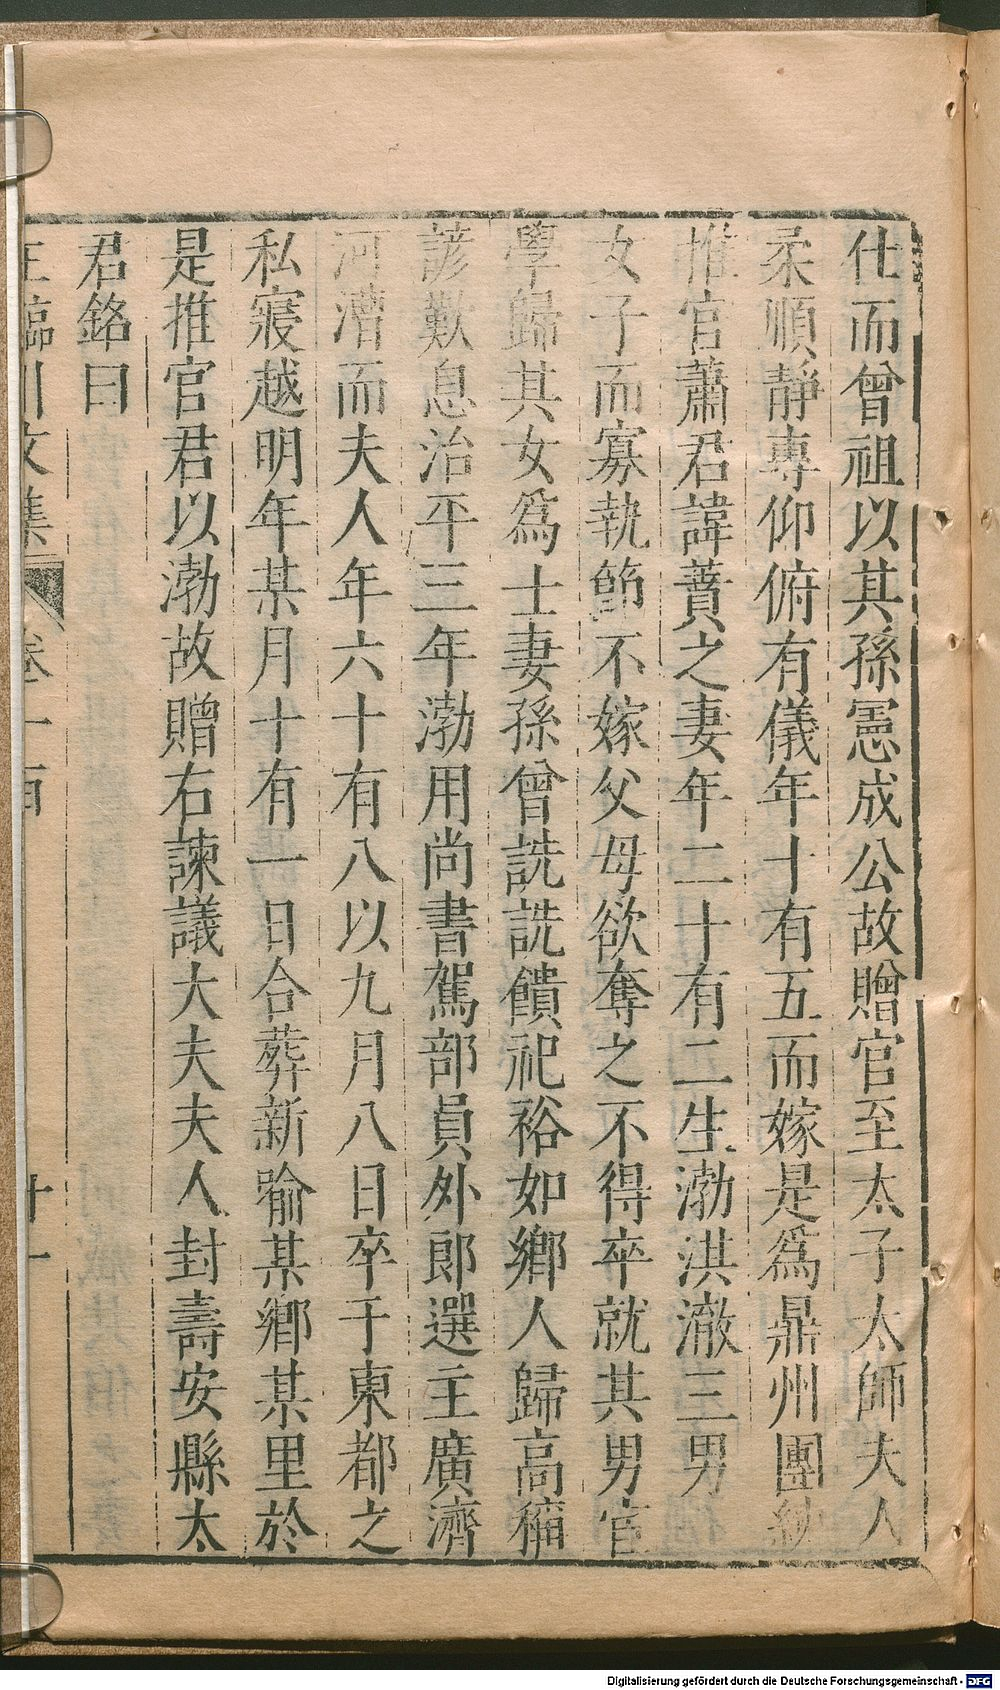 仕而曾祖以其孫憲成公故贈官至太子太師夫人
柔順靜專仰俯有儀年十有五而嫁是爲鼎州團練
推官蕭君諱蕡之妻年二十有二生渤洪澈三男
女子而寡執節不嫁父母欲奪之不得卒就其男官
學歸其女爲士妻孫曾詵詵饋祀裕如鄉人歸高稱
諺歎息治平三年渤用尚書駕部員外郎選主廣濟
河漕而夫人年六十有八以九月八日卒于東都之
私寢越明年某月十有一日合葬新喻某鄉某里於
是推官君以渤故贈右諫議大夫夫人封壽安縣太
君銘曰
王臨川文集 卷一百 十一
Digitalisierung gefördert durch die Deutsche Forschungsgemeinschaft - DFG